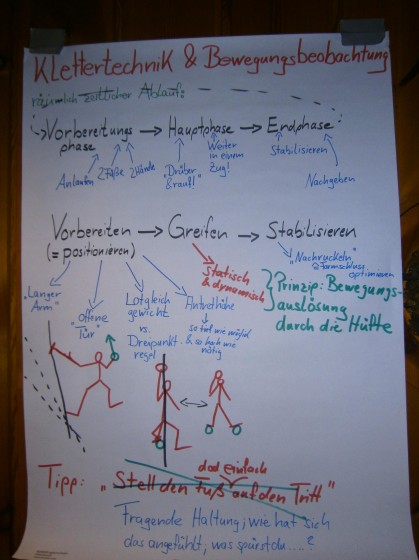 Klettertechnik & Bewegungsbeobachtung
räumlich zeitlicher Ablauf:
Vorbereitungs → Hauptphase → Endphase
phase
Anlaufen 2 Füße 2 Hände
"Drüber & rauf!"
Weiter in einem Zug!
Stabilisieren
Nachgeben
Vorbereiten → Greifen → Stabilisieren
(= positionieren)
Statisch & dynamisch
"Nachruckeln"
& Formschluss optimieren
Prinzip: Bewegungs-
auslösung
durch die Hüfte
"Langer Arm"
"offene Tür"
Lotgleich
gewicht
vs.
Drehpunkt
regel
Antrethöhe
so tief wie möglich
& so hoch wie
nötig
doch einfach
Tipp: "Stell den Fuß auf den Tritt"
Fragende Haltung; wie hat sich
das angefühlt, was spürst du.....?